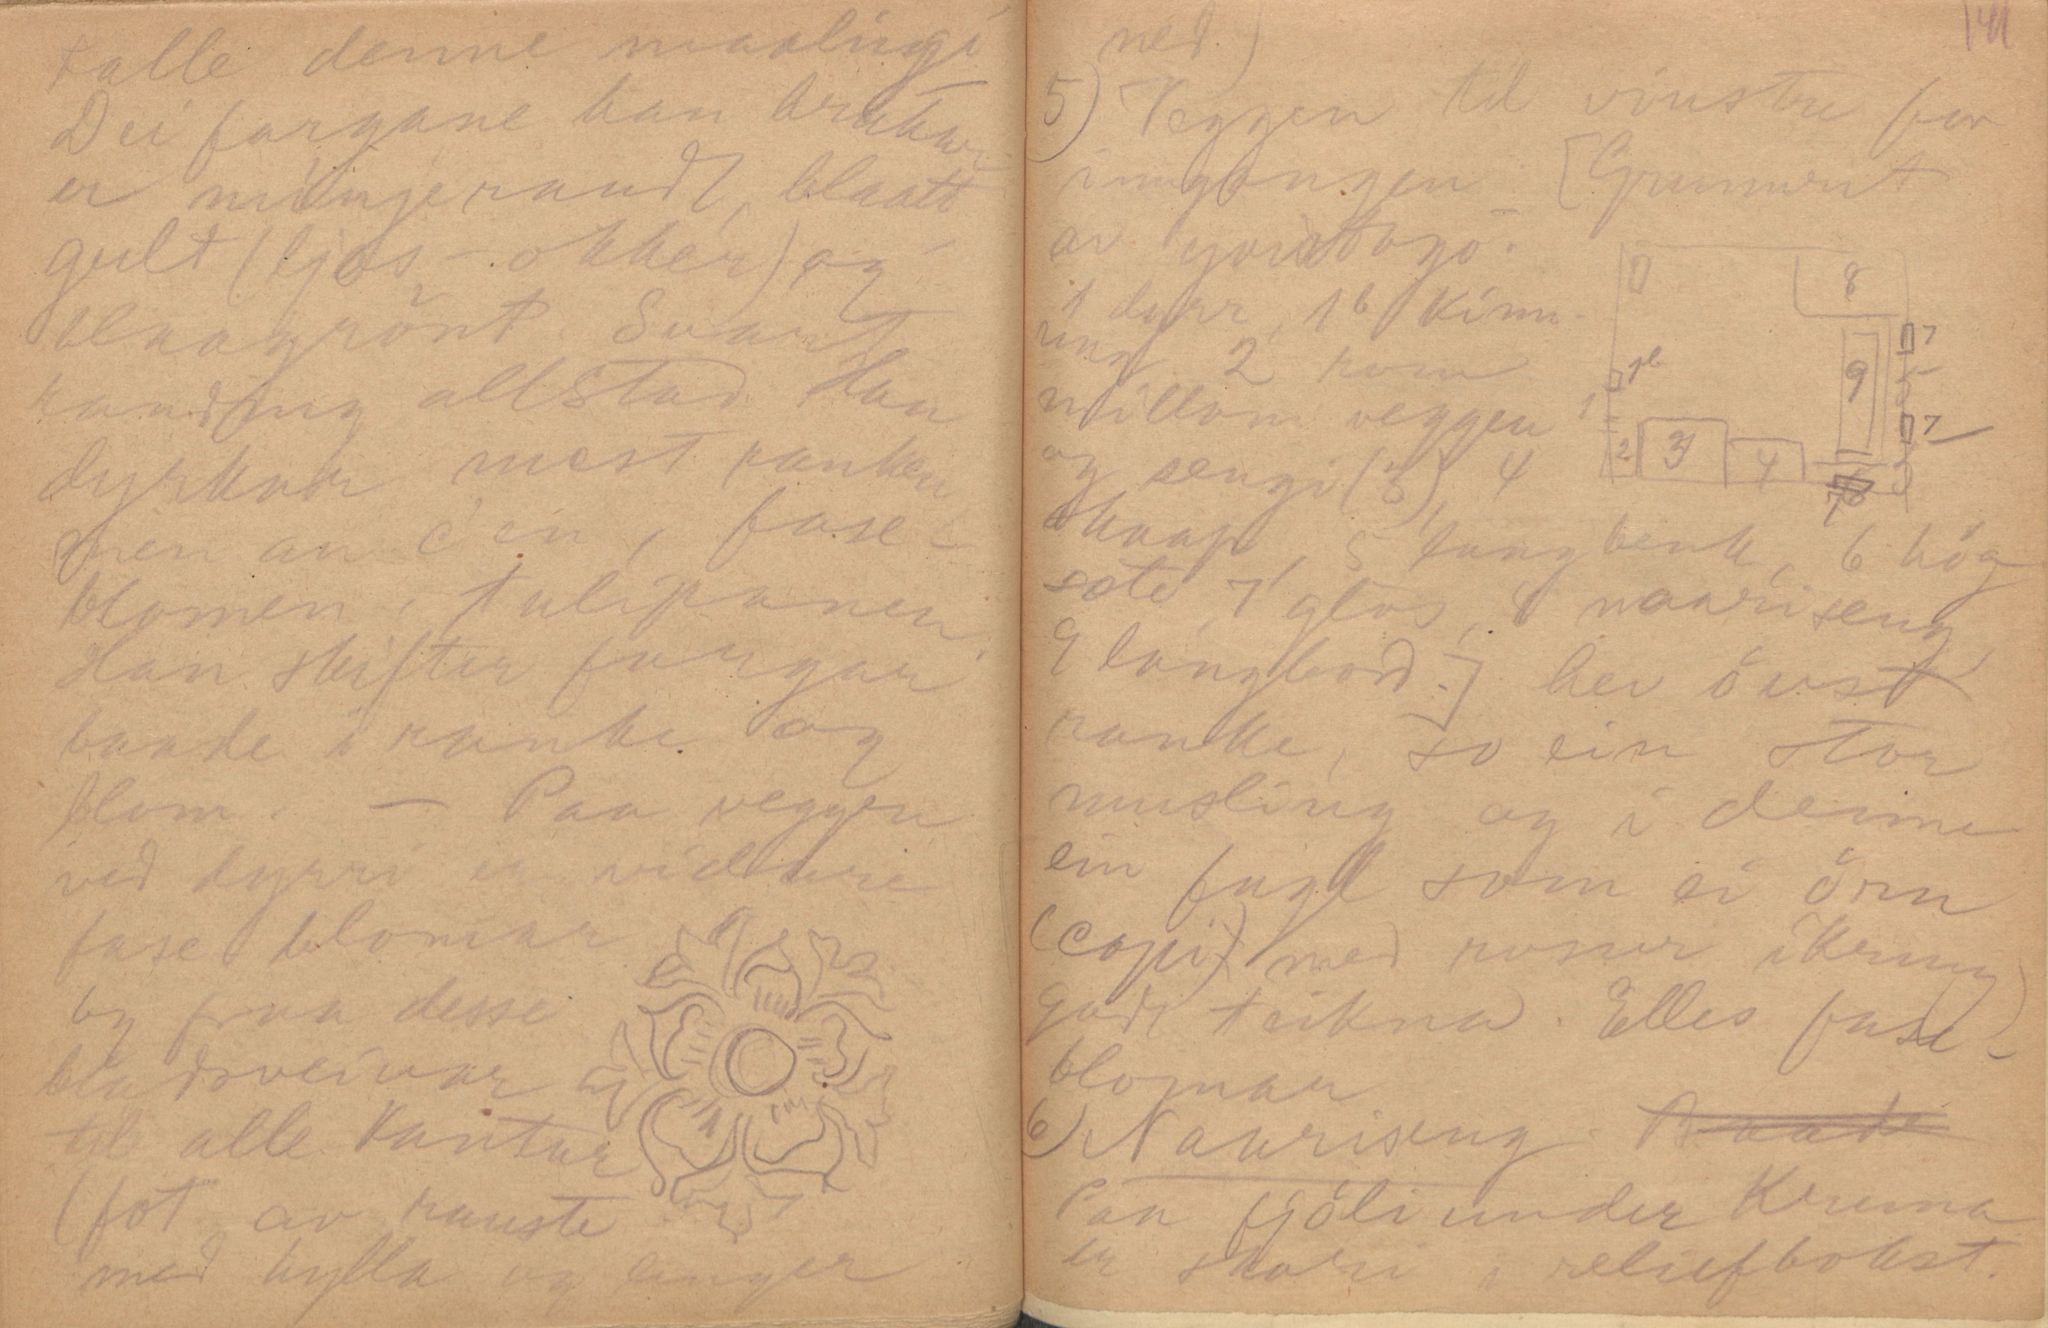 kalle denne maalingi
Dei fargane han brukar
er mönjeraudt, blaatt
gult (ljos-okker) og
blaagrönt. Svart
randing allstad Han
dyrkar mest ranken
men au ein, fase-
blomen, tulipanen.
Han skifter fargar
baade i ranke og
blom. — Paa veggen
ved dyrri er vidare
fase blomar
og fraa desse
bladsveivar
til alle kantar
(fot av
med hylla og
ned)
141
5) Veggen til vinstre for
inngangen [Grunnrit
av
1 dyrr, 1b kinn-
ing 2 rom
millom veggen
og sengi (3), 4
skaap, 5 langbenk, 6 hög
sæte, 7 glas, 8 naariseng
9 langbord.] hev övst
ranke, so ein stor
musling og i denne
ein fugl som ei örn
(copi) med rosur ikring
godt teikna. Elles fase-
blomar
6) Naariseng. Baade
Paa fjöli under Kruna
er skori i reliefbokst.
8
7
1b
9
5
1
7
2
3
4
7